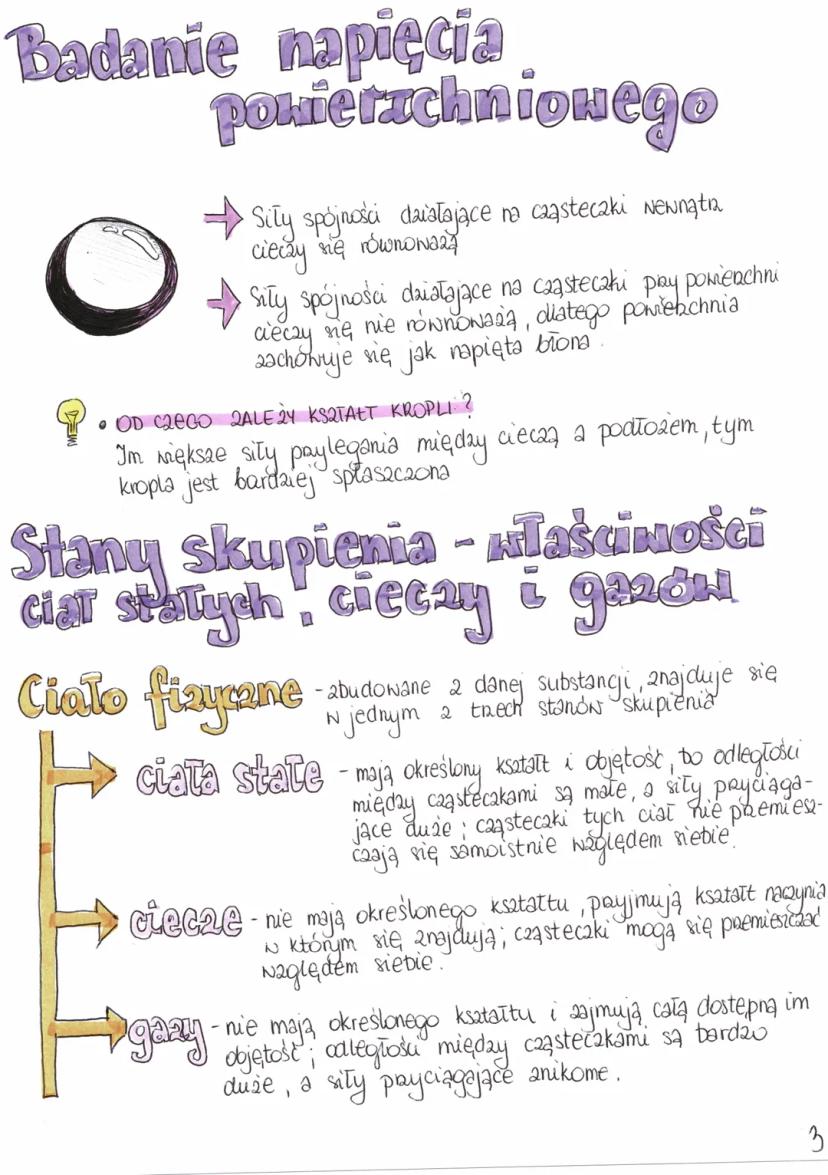 Badanie napięcia
powierzchniowego
Siły spójności działające na cząsteczki wewnątrz
cieczy się równoważą
Siły spójności działające na cząsteczki przy powierzchni
cieczy się nie równoważą, dlatego powierzchnia
zachowuje się jak napięta błona.
• OD CZEGO ZALEŻY KSZTAŁT KROPLI?
Im większe siły przylegania między cieczą a podłożem, tym
kropla jest bardziej spłaszczona
Stany skupienia - właściwości
ciał stałych, cieczy i gazów
Ciało fizyczne - zbudowane z danej substancji, znajduje się
w jednym z trzech stanów skupienia
ciała stałe - mają określony kształt i objętość, bo odległości
między cząsteczkami są małe, a siły przyciąga-
jące duże; cząsteczki tych ciał nie przemiesz-
czają się samoistnie względem siebie.
ciecze - nie mają określonego kształtu, przyjmują kształt naczynia
w którym się znajdują; cząsteczki mogą się przemieszczać
względem siebie.
gazy - nie mają określonego kształtu i zajmują całą dostępną im
objętość; odległości między cząsteczkami są bardzo
duże, a siły przyciągające znikome.
3